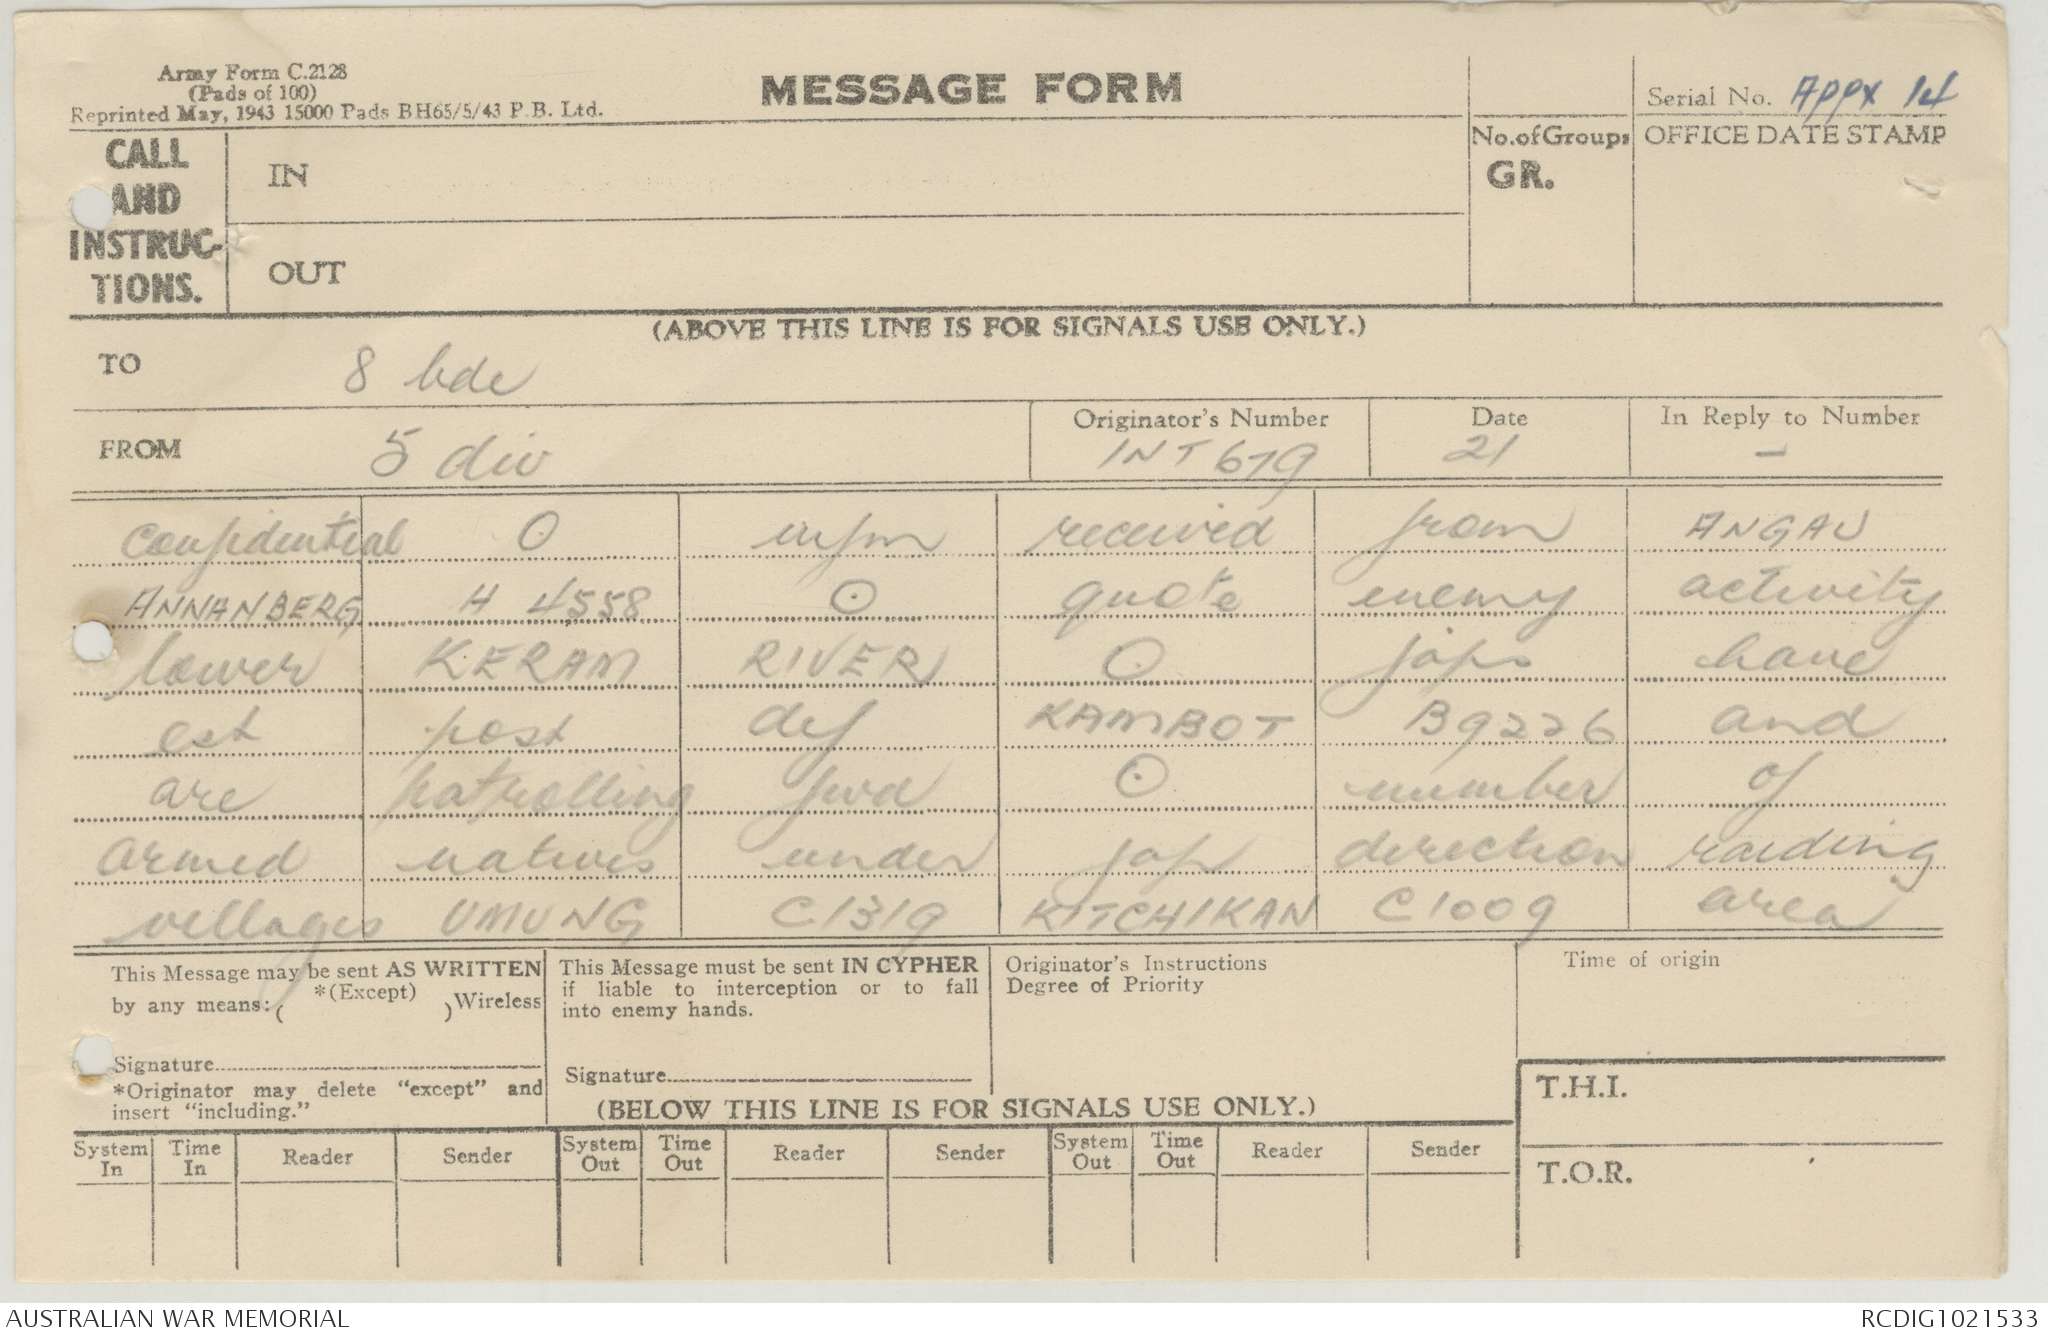 Army Form C.2128
(Pads of 100)
Reprinted May, 1943 15000 Pads BH65/5/43 P.B. Ltd.
MESSAGE FORM
Serial No. Appx 14
CALL AND INSTRUC-TIONS.
IN
OUT
No. of Groups
GR.
OFFICE DATE STAMP
(ABOVE THIS LINE IS FOR SIGNALS USE ONLY.)
TO 8 bde
FROM 5 div
Originator's Number INT 679
Date 21
In Reply to Number -
confidential O infm received from ANGAU
ANNANBERG H 4558 O quote enemy activity
lower KERAM RIVER O japs have
est post def KAMBOT B9226 and
are patrolling fwd O number of
armed natives under jap direction raiding
villages UMUNG C1319 KITCHIKAN C1009 area
This Message may be sent AS WRITTEN
by any means: ( *(Except) ) Wireless
Signature
*Originator may delete "except" and
insert "including."
This Message must be sent IN CYPHER
if liable to interception or to fall
into enemy hands.
Signature
Originator's Instructions
Degree of Priority
Time of origin
(BELOW THIS LINE IS FOR SIGNALS USE ONLY.)
T.H.I.
T.O.R.
System In Time In Reader Sender System Out Time Out Reader Sender System Out Time Out Reader Sender
AUSTRALIAN WAR MEMORIAL
RCDIG1021533